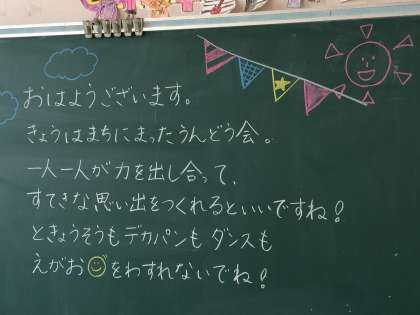 おはようございます。
きょうはまちにまったうんどう会。
一人一人が力を出し合って、
すてきな思い出をつくれるといいですね!
ときょうそうもデカパンもダンスも
えがお をわすれないでね!